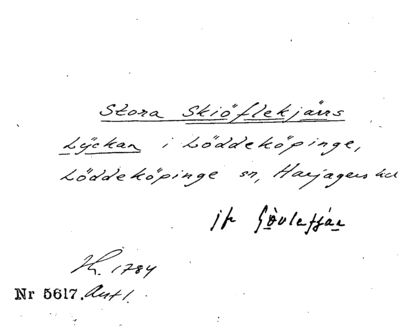 Stora Skiöflekjärrs
Lÿckan i Löddeköpinge,
Löddeköpinge sn, Harjagers hd
jfr
H. 1784
Nr 5617. Avt 1.